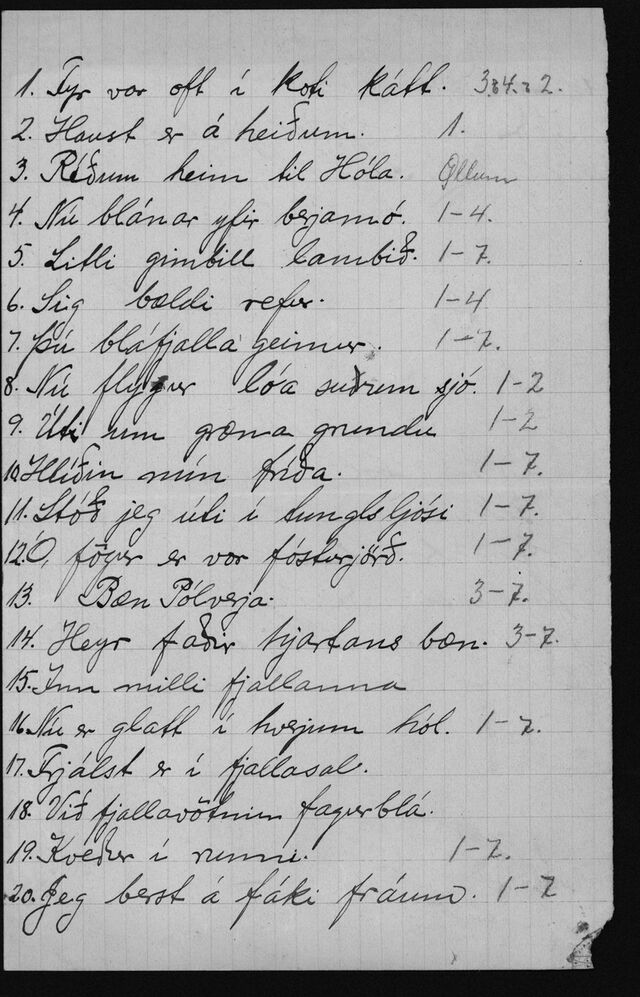 1. Fyr var oft í koti kátt. 3.4. 2.
2. Haust er á heiðum. 1.
3. Ríðum heim til Hóla. Øllum
4. Nú blánar yfir berjamó. 1-4.
5. Litli gimbill lambið. 1-7.
6. Sig bældi refur. 1-4
7. Þú bláfjalla geimur. 1-7.
8. Nú flygur lóa suðrum sjó. 1-2
9. Úti um græna grundu 1-2
10. Hlíðin mín fríða. 1-7.
11. Stóð jeg úti í tunglsljósi 1-7.
12. Ó, fögur er vor fósturjörð. 1-7.
13. Bæn Pólverja. 3-7.
14. Heyr faðir hjartans bæn. 3-7.
15. Inn milli fjallanna
16. Nú er glatt í hverjum hól. 1-7.
17. Frjálst er í fjallasal.
18. Við fjallavötnin fagurblá.
19. Kveður í runni. 1-7.
20. Jeg berst á fáki fráum. 1-7